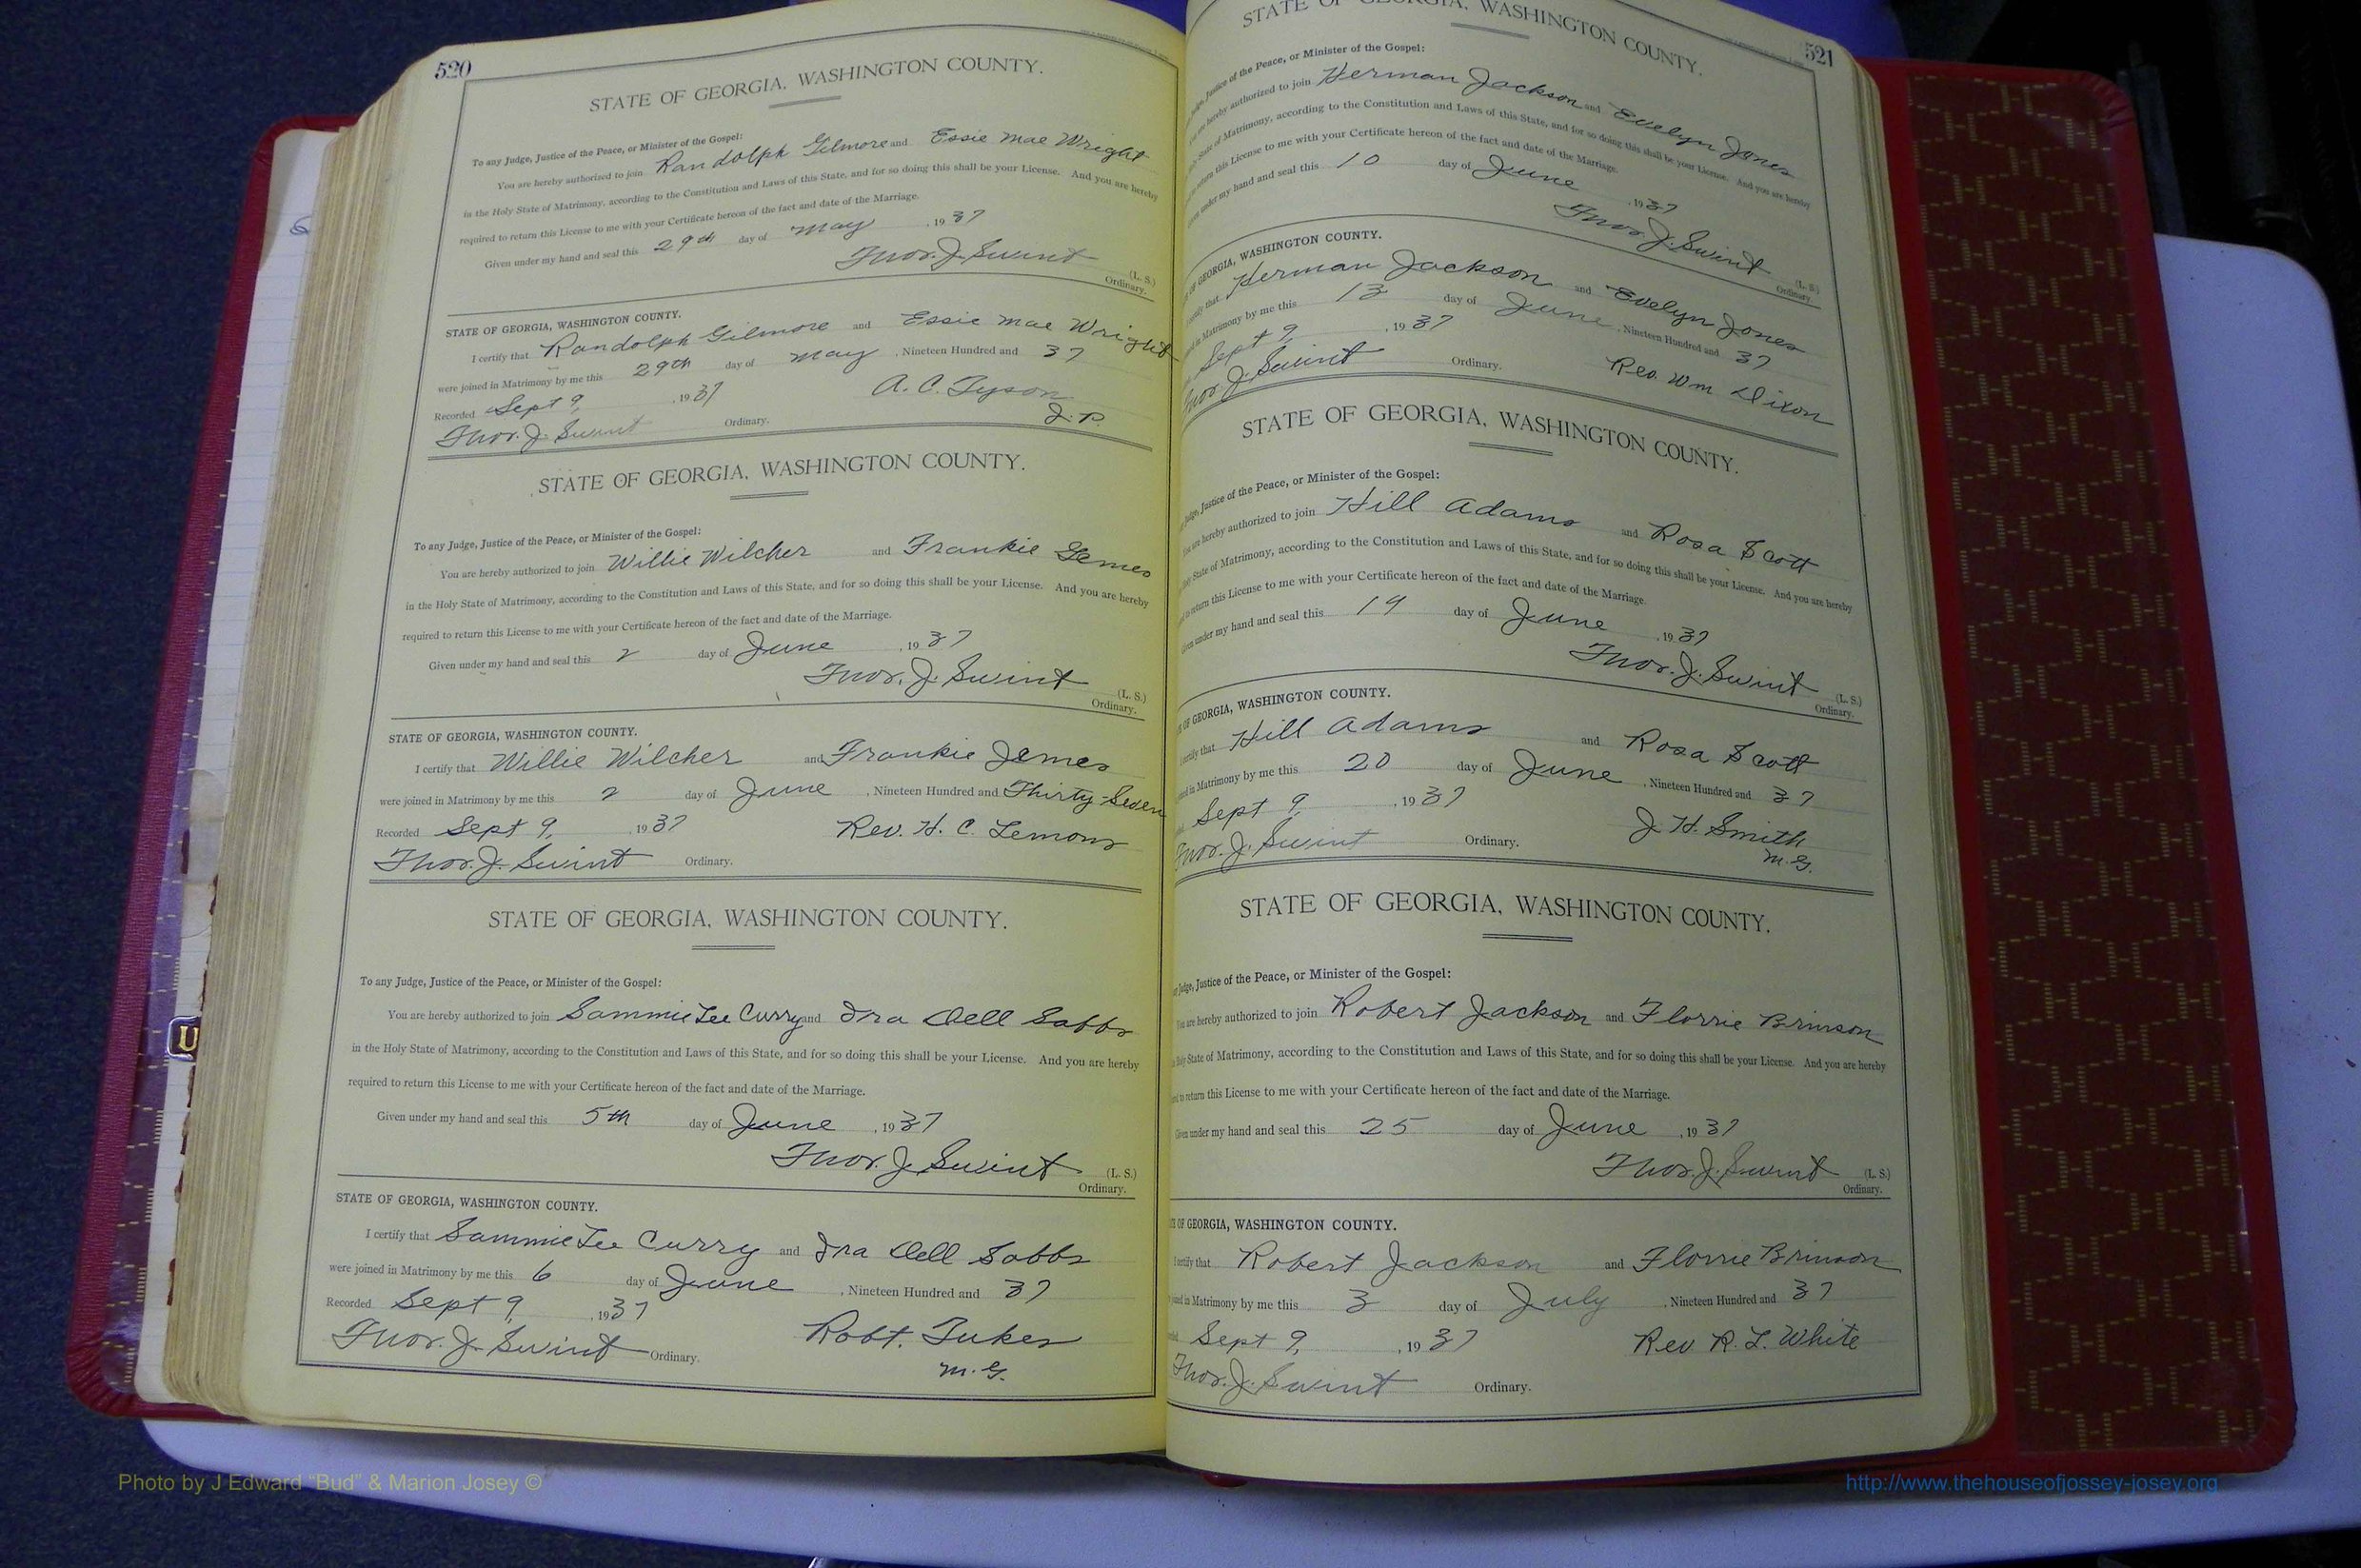 520
STATE OF GEORGIA, WASHINGTON COUNTY.
To any Judge, Justice of the Peace, or Minister of the Gospel:
You are hereby authorized to join Randolph Gilmore and Essie Mae Wright
in the Holy State of Matrimony, according to the Constitution and Laws of this State, and for so doing this shall be your License. And you are hereby
required to return this License to me with your Certificate hereon of the fact and date of the Marriage.
Given under my hand and seal this 29th day of May, 1937
Thos. J. Swint (L. S.)
Ordinary.
STATE OF GEORGIA, WASHINGTON COUNTY.
I certify that Randolph Gilmore and Essie Mae Wright
were joined in Matrimony by me this 29th day of May, Nineteen Hundred and 37
Recorded Sept 9, 1937 A. C. Tyson
Thos. J. Swint Ordinary. J. P.
STATE OF GEORGIA, WASHINGTON COUNTY.
To any Judge, Justice of the Peace, or Minister of the Gospel:
You are hereby authorized to join Willie Wilcher and Frankie Jemes
in the Holy State of Matrimony, according to the Constitution and Laws of this State, and for so doing this shall be your License. And you are hereby
required to return this License to me with your Certificate hereon of the fact and date of the Marriage.
Given under my hand and seal this 2 day of June, 1937
Thos. J. Swint (L. S.)
Ordinary.
STATE OF GEORGIA, WASHINGTON COUNTY.
I certify that Willie Wilcher and Frankie James
were joined in Matrimony by me this 2 day of June, Nineteen Hundred and Thirty-Seven
Recorded Sept 9, 1937 Rev. H. C. Lemons
Thos. J. Swint Ordinary.
STATE OF GEORGIA, WASHINGTON COUNTY.
To any Judge, Justice of the Peace, or Minister of the Gospel:
You are hereby authorized to join Sammie Lee Curry and Ira Dell Sabbs
in the Holy State of Matrimony, according to the Constitution and Laws of this State, and for so doing this shall be your License. And you are hereby
required to return this License to me with your Certificate hereon of the fact and date of the Marriage.
Given under my hand and seal this 5th day of June, 1937
Thos. J. Swint (L. S.)
Ordinary.
STATE OF GEORGIA, WASHINGTON COUNTY.
I certify that Sammie Lee Curry and Ira Dell Sabbs
were joined in Matrimony by me this 6 day of June, Nineteen Hundred and 37
Recorded Sept 9, 1937 Robt. Tukes
Thos. J. Swint Ordinary. M. G.
521
STATE OF GEORGIA, WASHINGTON COUNTY.
Judge, Justice of the Peace, or Minister of the Gospel:
are hereby authorized to join Herman Jackson and Evelyn Jones
State of Matrimony, according to the Constitution and Laws of this State, and for so doing this shall be your License. And you are hereby
return this License to me with your Certificate hereon of the fact and date of the Marriage.
under my hand and seal this 10 day of June, 1937
Thos. J. Swint (L. S.)
Ordinary.
OF GEORGIA, WASHINGTON COUNTY.
certify that Herman Jackson and Evelyn Jones
in Matrimony by me this 13 day of June, Nineteen Hundred and 37
Sept 9, 1937 Rev. Wm Dixon
Thos. J. Swint Ordinary.
STATE OF GEORGIA, WASHINGTON COUNTY.
Judge, Justice of the Peace, or Minister of the Gospel:
You are hereby authorized to join Hill Adams and Rosa Scott
Holy State of Matrimony, according to the Constitution and Laws of this State, and for so doing this shall be your License. And you are hereby
to return this License to me with your Certificate hereon of the fact and date of the Marriage.
Given under my hand and seal this 19 day of June, 1937
Thos. J. Swint (L. S.)
Ordinary.
OF GEORGIA, WASHINGTON COUNTY.
certify that Hill Adams and Rosa Scott
in Matrimony by me this 20 day of June, Nineteen Hundred and 37
Sept 9, 1937 J. H. Smith
Thos. J. Swint Ordinary. M. G.
STATE OF GEORGIA, WASHINGTON COUNTY.
Judge, Justice of the Peace, or Minister of the Gospel:
You are hereby authorized to join Robert Jackson and Florrie Brinson
Holy State of Matrimony, according to the Constitution and Laws of this State, and for so doing this shall be your License. And you are hereby
to return this License to me with your Certificate hereon of the fact and date of the Marriage.
Given under my hand and seal this 25 day of June, 1937
Thos. J. Swint (L. S.)
Ordinary.
OF GEORGIA, WASHINGTON COUNTY.
I certify that Robert Jackson and Florrie Brinson
joined in Matrimony by me this 3 day of July, Nineteen Hundred and 37
Sept 9, 1937 Rev R. L. White
Thos. J. Swint Ordinary.
Photo by J Edward “Bud” & Marion Josey ©
http://www.thehouseofjossey-josey.org